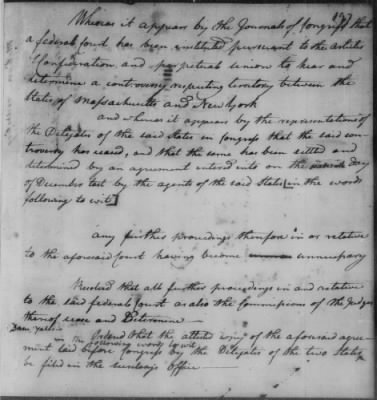 Whereas it appears by the Journals of Congress that
a federal Court has been instituted pursuant to the Articles
of Confederation and perpetual union to hear and
determine a controversy respecting territory between the
States of Massachusetts and New York
and whereas it appears by the representations of
the Delegates of the said States in Congress that the said con-
troversy has ceased, and that the same has been settled and
determined by an agreement entered into on the day
of December last by the agents of the said States [in the words
following to wit]
any further proceedings therefore in or relative
to the aforesaid court having become unnecessary
Resolved that all further proceedings in and relative
to the said federal Court as also the Commissions of the Judges
thereof cease and Determine —
in the following words to wit
Ordered that the attested copy of the aforesaid agree-
ment laid before Congress by the Delegates of the two States
be filed in the Secretary's Office —